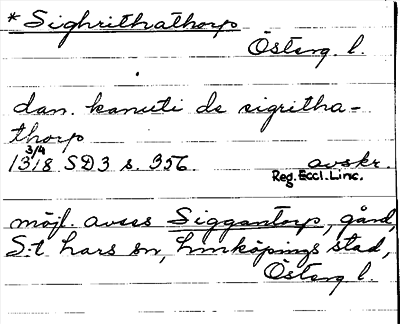 * Sighrithathorp
Österg. l.
dan. kanuti de sigritha-
thorp
3/4
1318 SD3 s. 356. avskr.
Reg. Eccl. Linc.
möjl. avses Siggantorp, gård,
S:t Lars sn, Linköpings stad,
Österg l.